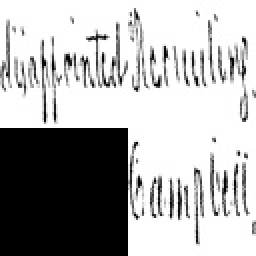 disappointed Recruiting
Campbell